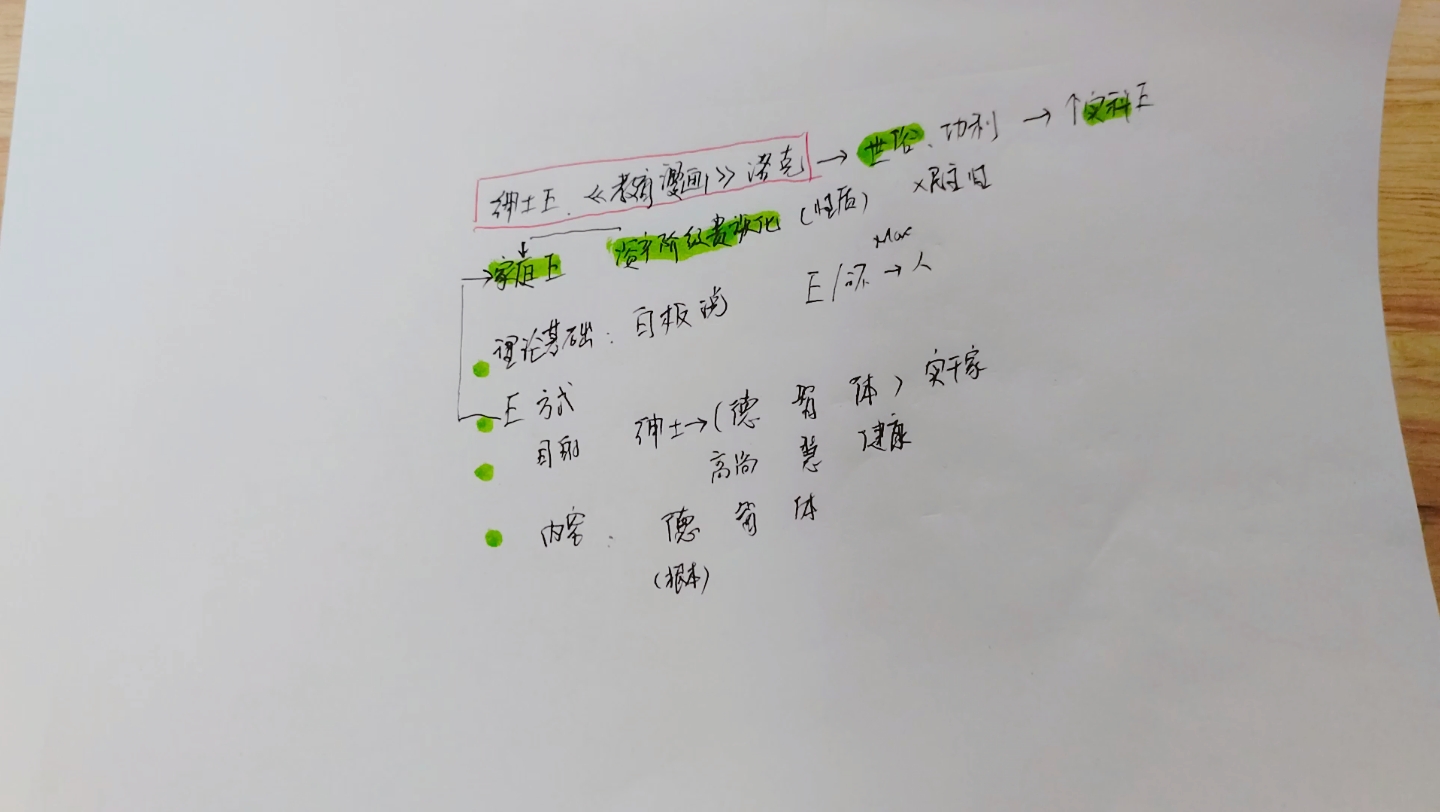 绅士E.《教育漫画》洛克 → 世俗、功利 → ↑文科E
×民主性
→家庭E 资产阶级贵族化(性质)
理论基础:白板说 E/环 → 人
E方式
目的 绅士→(德 智 体) 实干家
高尚 慧 健康
内容: 德 智 体
(根本)